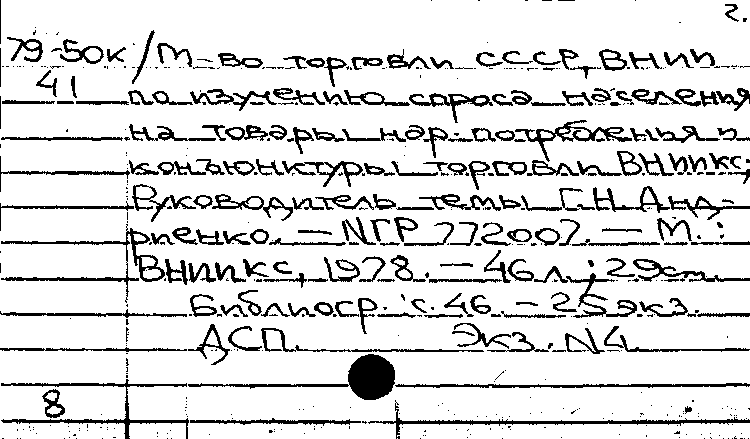 2.
79-50к / М-во торговли СССР, ВНИИ
41 по изучению спроса населения
на товары нар. потребленья и
конъюнктуры торговли ВНИИКС;
Руководитель темы Г.Н. Анд-
риенко. — NГР 772007. — М. :
ВНИИКС, 1978. — 46 л. ; 29 см.
Библиогр.: с. 46. — 25 экз.
ДСП. Экз. N4
8